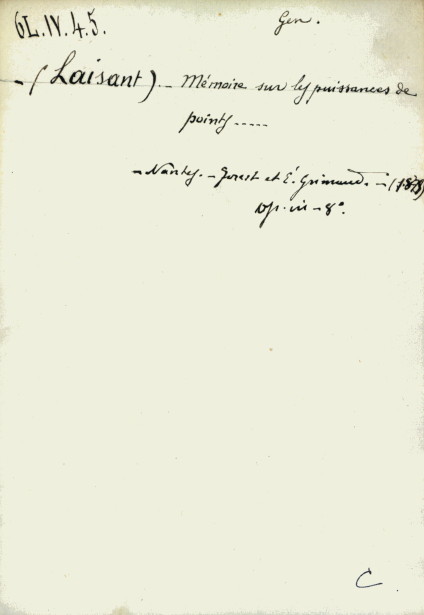 6L.IV.4.5.
Gen.
- (Laisant) - Mémoire sur les puissances de
points -----
- Nantes. - Forest et É. Grimaud. - (1878)
- 8º.
C